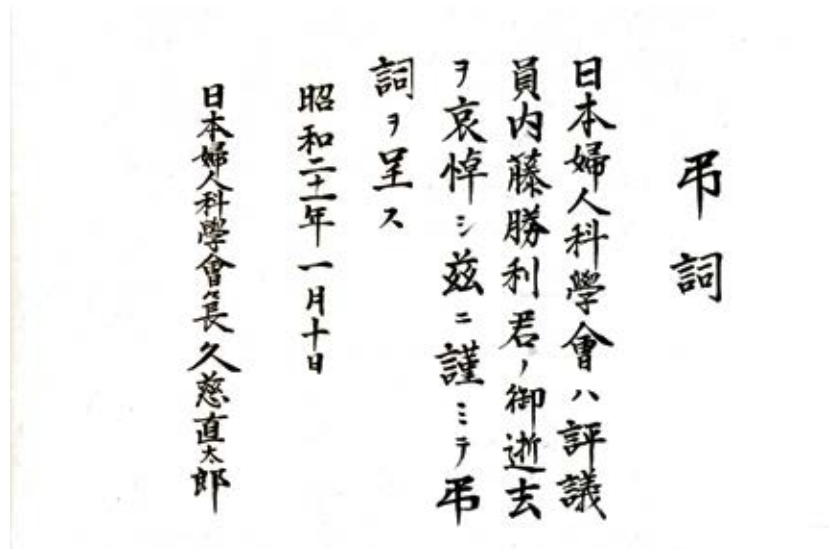 弔詞
日本婦人科學會ハ評議
員内藤勝利君ノ御逝去
ヲ哀悼シ茲ニ謹ミテ弔
詞ヲ呈ス
昭和二十一年一月十日
日本婦人科學會々長久慈直太郎